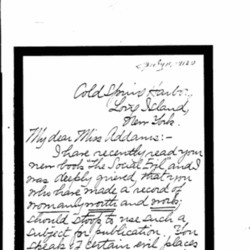 Cold Spring Harbor,
Long Island,
New York.
My dear Miss Addams:-
I have recently read your
new book "The Social Evil, and I
was deeply grieved, that you
who have made a record of
womanly worth and work,
should stoop to use such a
subject for publication. You
speak of certain evil places